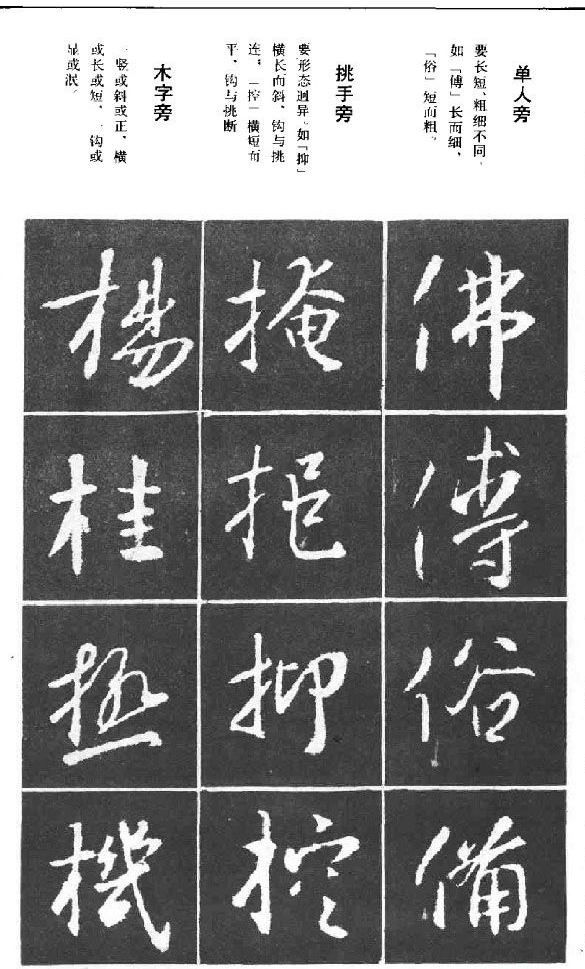 单人旁
要长短、粗细不同。
如「傅」长而细、
「俗」短而粗。
挑手旁
要形态迥异。如「抑」
横长而斜、钩与挑
连，「控」横短而
平、钩与挑断
木字旁
一竖或斜或正、横
或长或短、一钩或
显或泯。
佛
傅
俗
備
掩
拒
抑
控
楊
桂
極
機